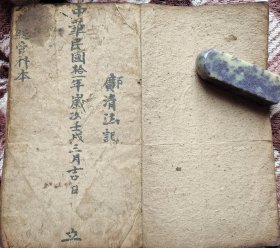 清法記
中華民國拾年歲次壬戌三月吉日
立
官科本